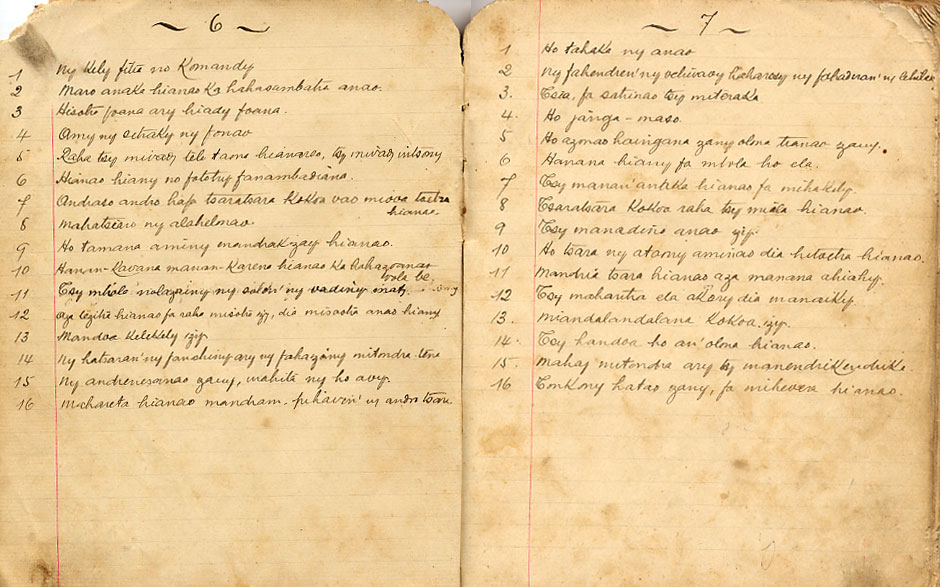 ~ 6 ~
1 Ny kely fitia no Komandy
2 Maro anaka hianao ka hahasambatra anao.
3 Hisotro foana ary hiady foana.
4 Amy ny ny fonao
5 Raha tsy mivady telo taona hianareo, tsy mivady intsony
6 Hianao hiany no fototry fanambadiana.
7 Andraso andro hafa tsaratsara kokoa vao miova toetra
hianao
8 Mahatsiaro ny alahelonao
9 Ho tamana aminy mandrak-zay hianao.
10 Hanan-Kavana manan-Karena hianao ka hahazoanao
vola be
11 Tsy mbola nolazainy ny ny vadiny
12 Aza tezitra hianao fa raha misotro izy, dia misaotra anao hiany
13 Mandoa kelikely izy
14 Ny hatsaran' ny fanahiny ary ny fahazany mitondra tena
15 Ny zany, mahita ny ho avy.
16 hianao ny andro tsara.
~ 7 ~
1 Ho tahaka ny anao
2 Ny ny ny
3. Tsia, fa satrinao tsy miteraka
4. Ho janga-maso.
5 Ho azonao haingana zany olona tianao zany.
6 Hanana hiany fa mbola ho ela.
7 Tsy manan' antra hianao fa
8 Tsaratsara kokoa raha tsy miala hianao.
9 Tsy manadino anao izy.
10 Ho tsara ny ataony aminao dia hianao.
11 Mandria tsara hianao aza manana ahiahy.
12 Tsy maharitra ela akory dia manaiky.
13. Miandalandalana kokoa izy.
14. Tsy handoa ho an' olona hianao.
15. Mahay mitondra ary tsy
16 hatao zany, fa mihevera hianao.